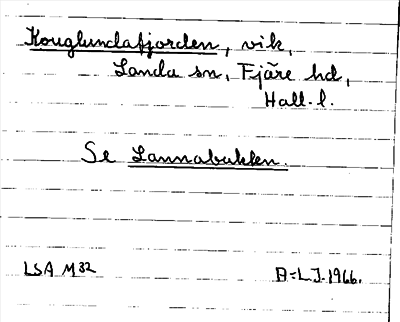 Kouglundafjorden, vik,
Landa sn, Fjäre hd,
Hall. l.
Se Lannabukten.
LSA M32
B-L J. 1966.